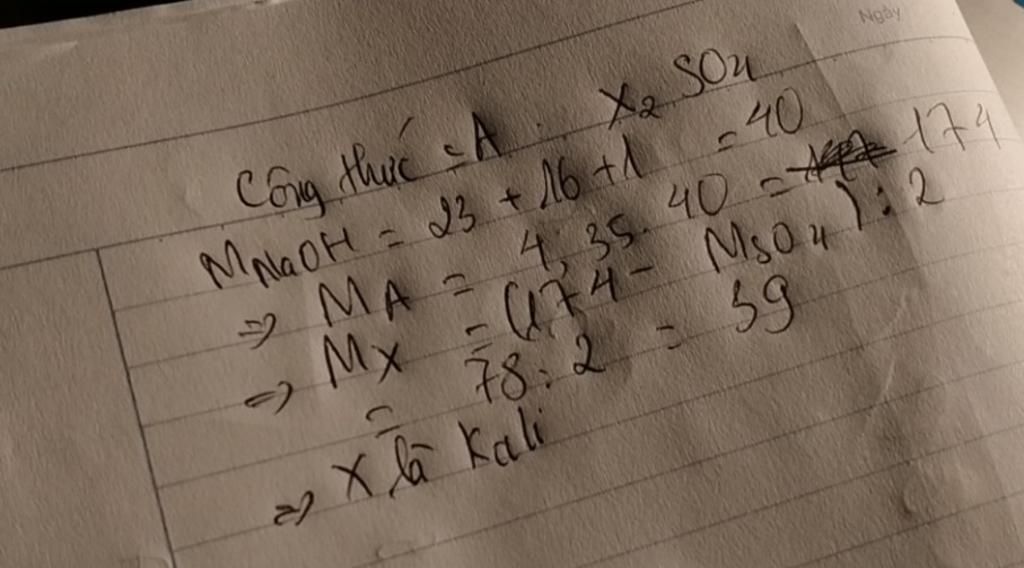 Ngày
Công thức A: X2 SO4
MNaOH = 23 + 16 + 1 = 40
=> MA = 4,35. 40 = 174
=> MX = (174 - MSO4) : 2
= 78 : 2 = 39
=> X là Kali